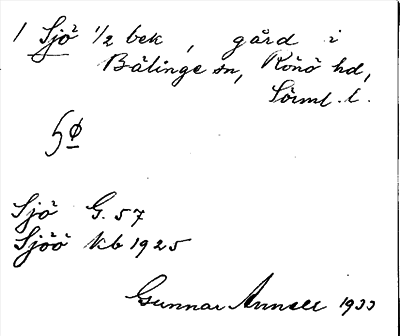 1 Sjö 1/2 bek, gård i
Bälinge sn, Rönö hd,
Sörml. l.
Sjö G. 57
Sjöö kb 1925
Gunnar Annell 1933